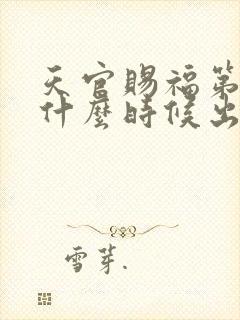 天官賜福第
什麼時候出
雪芽.